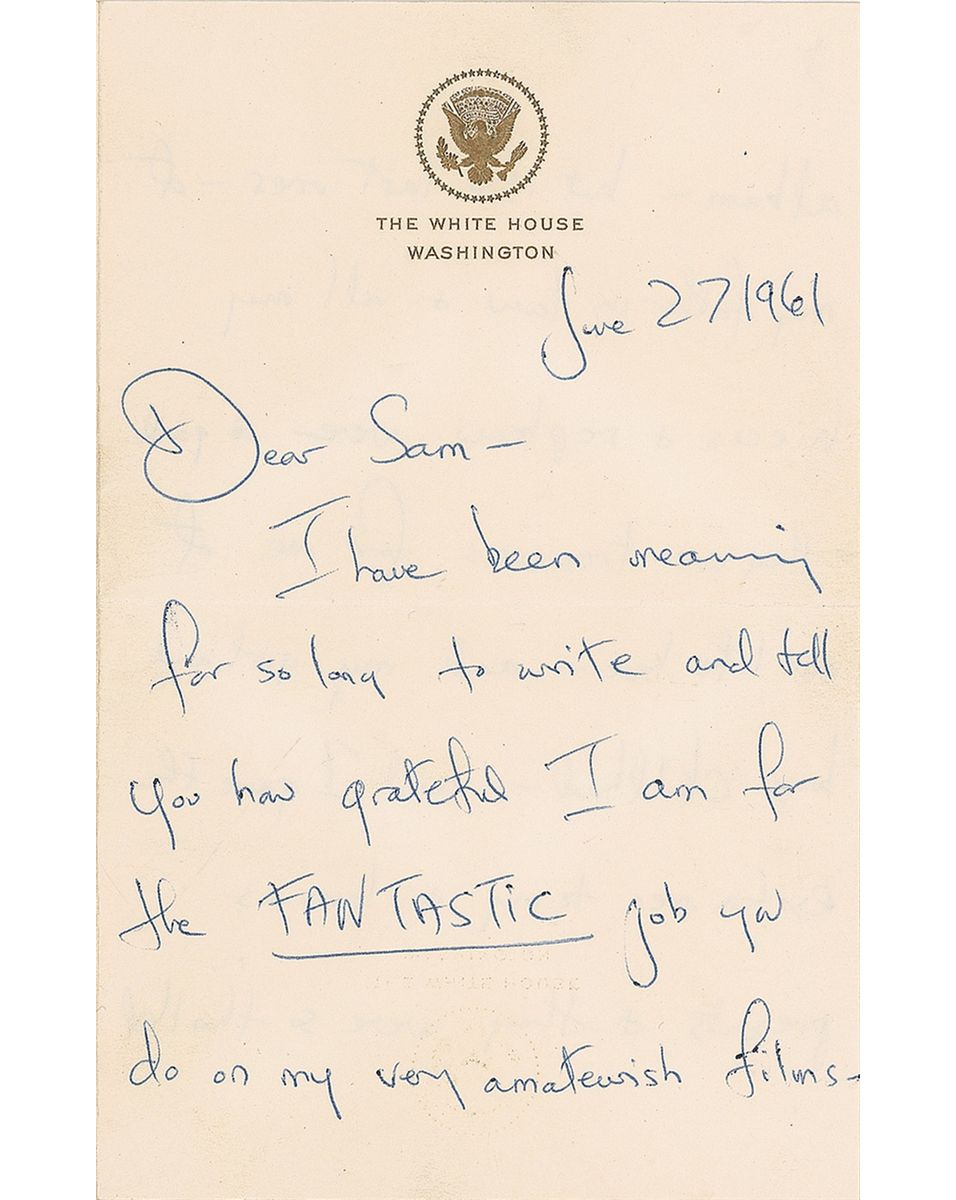 THE WHITE HOUSE
WASHINGTON
June 27 1961
Dear Sam —
I have been meaning
for so long to write and tell
you how grateful I am for
the FANTASTIC job you
do on my very amateurish films -